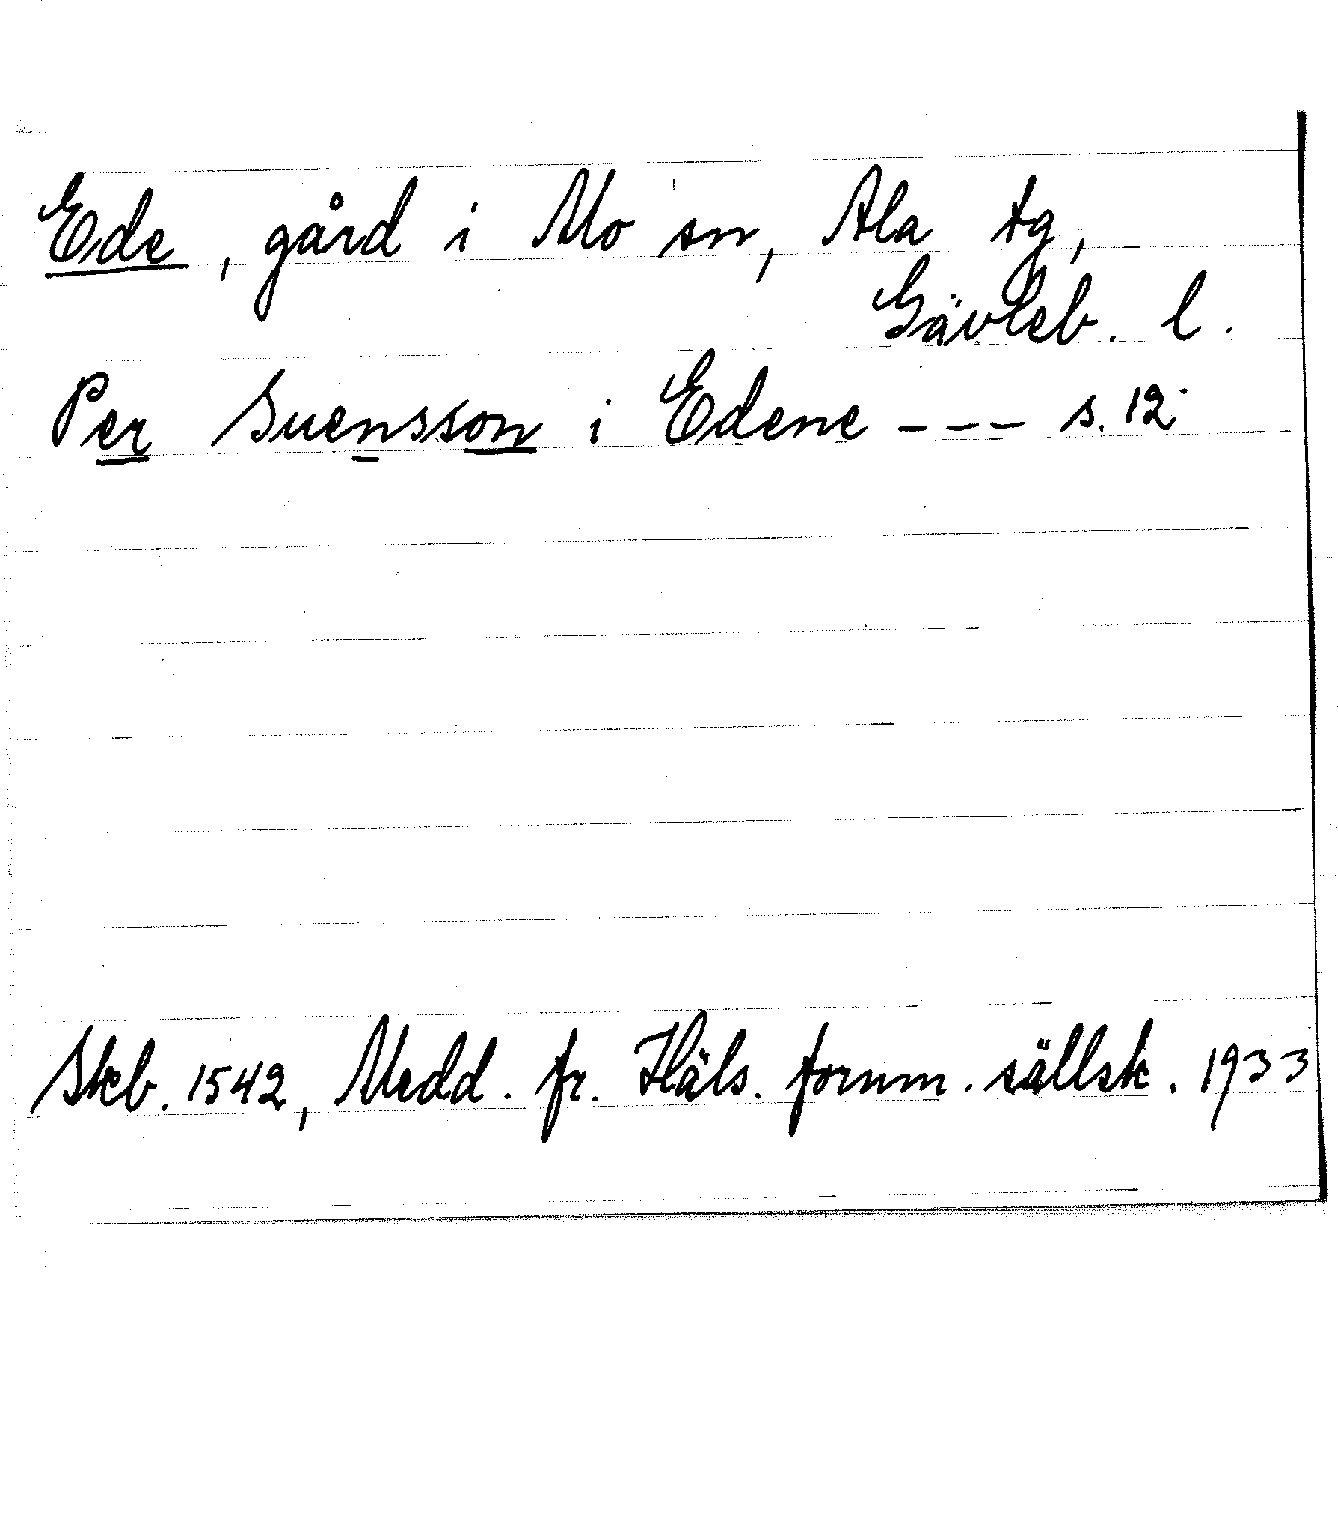 Ede, gård i Mo sn, Ala tg,
Gävleb. l.
Per Suensson i Edene --- s. 12
Skb. 1542, Medd. fr. Häls. fornm. sällsk. 1933